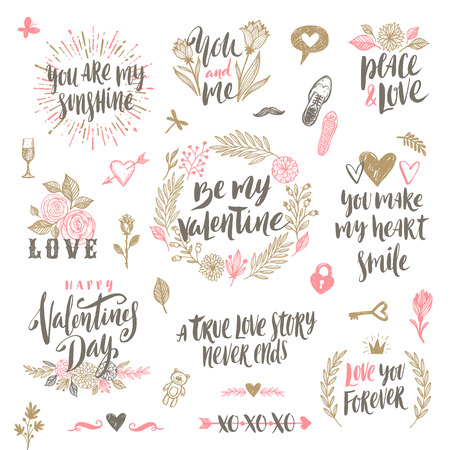 YOU ARE MY
SUNSHINE
You
and
me
PEACE
& LOVE
LOVE
BE MY
VALENTINE
YOU MAKE
MY HEART
SMILE
HAPPY
Valentines
DAY
A TRUE LOVE STORY
NEVER ENDS
XO XO XO
LOVE YOU
FOREVER